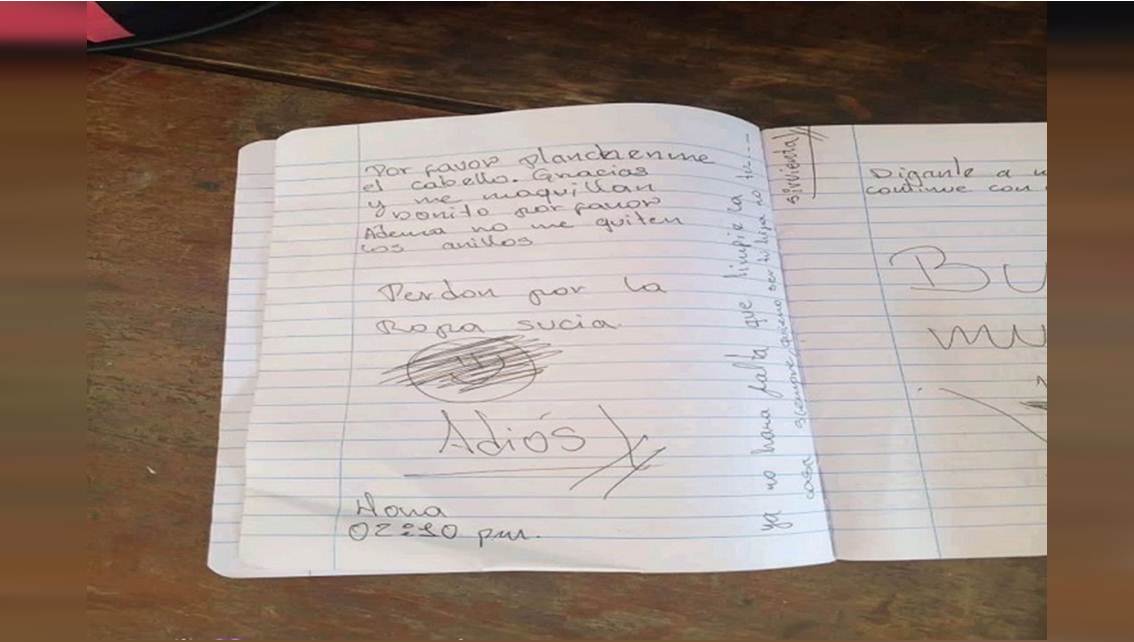 Por favor planchenme
el cabello. Gracias
y me maquillan
bonito por favor
Ademas no me quiten
los anillos
Perdon por la
Ropa sucia.
Adiós
Hora
02:10 pm.
ya no hara falta que limpie la
casa siempre, quiero ser tu hija no tu....
sirvienta
Diganle a
continue con